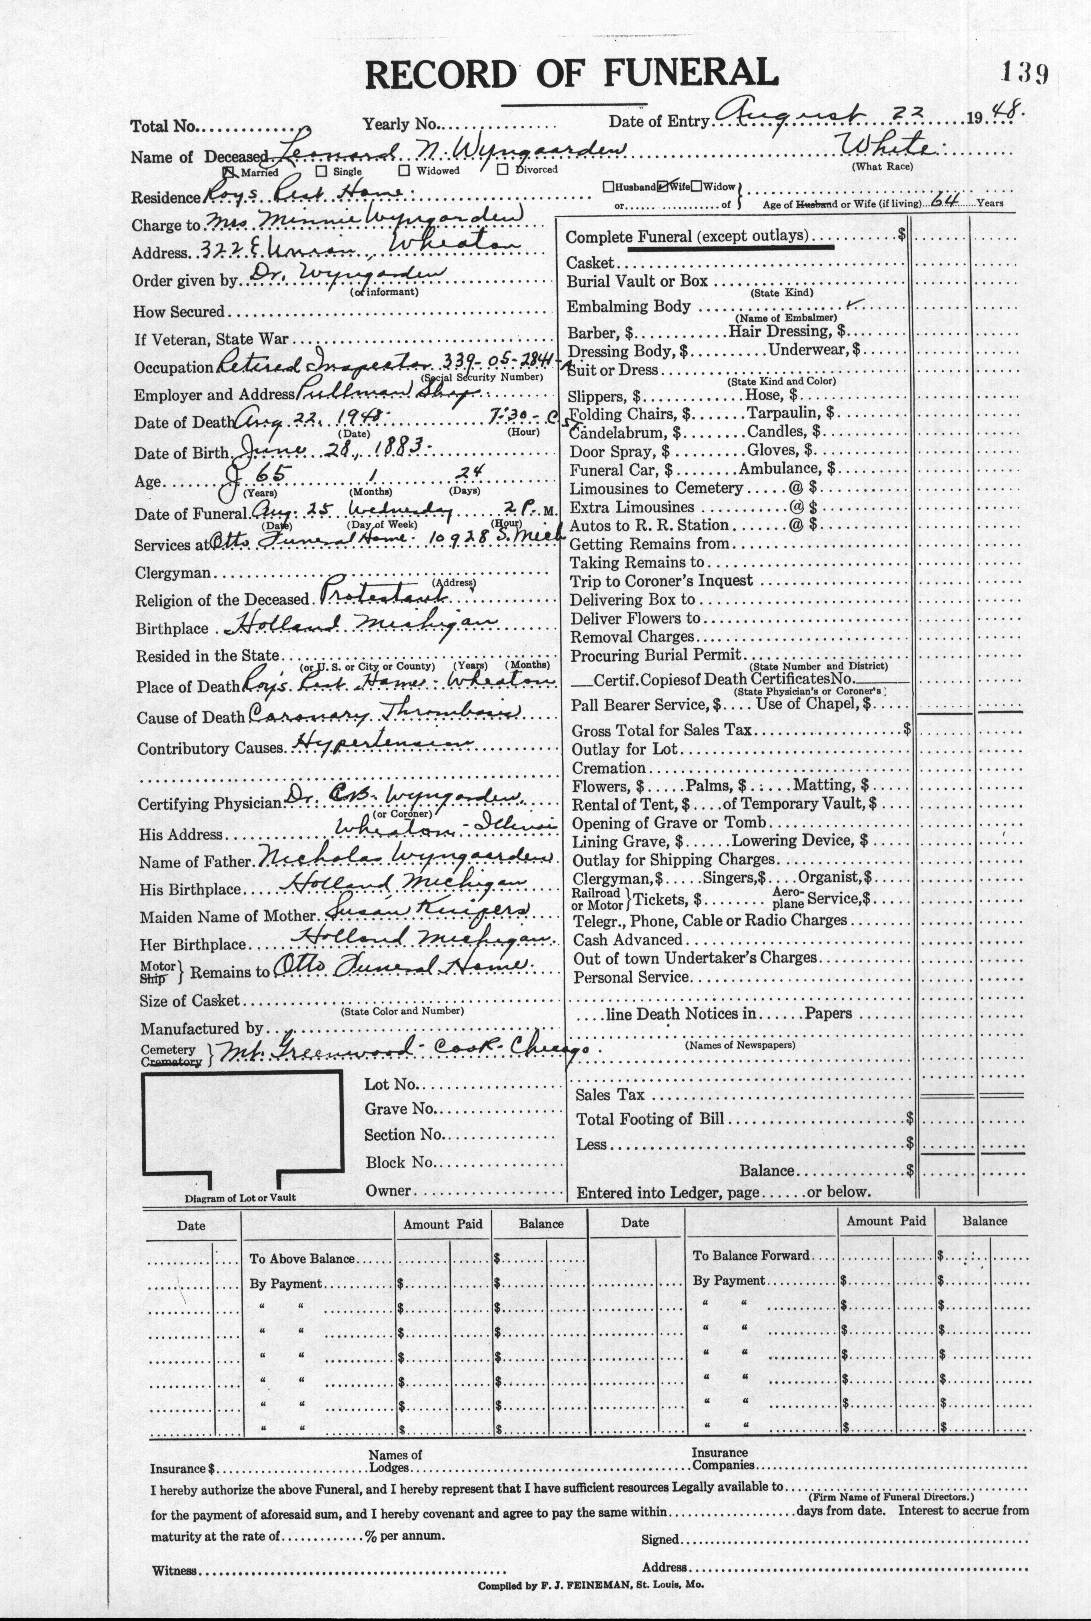 RECORD OF FUNERAL 139
Total No. Yearly No. Date of Entry August 22 1948.
Name of Deceased Leonard N. Wyngaarden White.
Married Single Widowed Divorced (What Race)
Residence Roys Rest Home. Husband Wife Widow
or of Age of Husband or Wife (if living) 64 Years
Charge to Mrs Minnie Wyngarden
Address. 322 E Union, Wheaton
Order given by Dr. Wyngarden
(or informant)
How Secured
If Veteran, State War
Occupation Retired Inspector 339-05-2841-A
(Social Security Number)
Employer and Address Pullman Shop
Date of Death Aug 22, 1948 7:30- C ST
(Date) (Hour)
Date of Birth. June 28, 1883-
Age 65 1 24
(Years) (Months) (Days)
Date of Funeral. Aug. 25 Wednesday 2 P. M.
(Date) (Day of Week) (Hour)
Services at Otto Funeral Home. 10928 S. Mich
Clergyman
(Address)
Religion of the Deceased. Protestant
Birthplace. Holland Michigan
Resided in the State
(or U. S. or City or County) (Years) (Months)
Place of Death Roy's Rest Home - Wheaton
Cause of Death Caronary Thrombosis
Contributory Causes. Hypertension
Certifying Physician Dr. C.B. Wyngarden
(or Coroner)
His Address Wheaton - Illinois
Name of Father. Nicholas Wyngaarden
His Birthplace Holland Michigan
Maiden Name of Mother. Susan Kuipers
Her Birthplace Holland Michigan.
Motor Ship } Remains to Otto Funeral Home.
Size of Casket
(State Color and Number)
Manufactured by
Cemetery Crematory } Mt. Greenwood - Cook - Chicago.
Lot No.
Grave No.
Section No.
Block No.
Owner
Diagram of Lot or Vault
Complete Funeral (except outlays) $
Casket
Burial Vault or Box
(State Kind)
Embalming Body ✓
(Name of Embalmer)
Barber, $ Hair Dressing, $
Dressing Body, $ Underwear, $
Suit or Dress
(State Kind and Color)
Slippers, $ Hose, $
Folding Chairs, $ Tarpaulin, $
Candelabrum, $ Candles, $
Door Spray, $ Gloves, $
Funeral Car, $ Ambulance, $
Limousines to Cemetery @ $
Extra Limousines @ $
Autos to R. R. Station @ $
Getting Remains from
Taking Remains to
Trip to Coroner's Inquest
Delivering Box to
Deliver Flowers to
Removal Charges
Procuring Burial Permit
(State Number and District)
Certif. Copies of Death Certificates No.
(State Physician's or Coroner's)
Pall Bearer Service, $ Use of Chapel, $
Gross Total for Sales Tax $
Outlay for Lot
Cremation
Flowers, $ Palms, $ Matting, $
Rental of Tent, $ of Temporary Vault, $
Opening of Grave or Tomb
Lining Grave, $ Lowering Device, $
Outlay for Shipping Charges
Clergyman, $ Singers, $ Organist, $
Railroad or Motor } Tickets, $ Aeroplane Service, $
Telegr., Phone, Cable or Radio Charges
Cash Advanced
Out of town Undertaker's Charges
Personal Service
line Death Notices in Papers
(Names of Newspapers)
Sales Tax
Total Footing of Bill $
Less $
Balance $
Entered into Ledger, page or below.
Date Amount Paid Balance Date Amount Paid Balance
To Above Balance $ To Balance Forward $
By Payment $ $ By Payment $ $
" " $ $ " " $ $
" " $ $ " " $ $
" " $ $ " " $ $
" " $ $ " " $ $
" " $ $ " " $ $
" " $ $ " " $ $
Insurance $ Names of Lodges Insurance Companies
I hereby authorize the above Funeral, and I hereby represent that I have sufficient resources Legally available to
(Firm Name of Funeral Directors.)
for the payment of aforesaid sum, and I hereby covenant and agree to pay the same within days from date. Interest to accrue from
maturity at the rate of % per annum. Signed
Witness Address
Compiled by F. J. FEINEMAN, St. Louis, Mo.